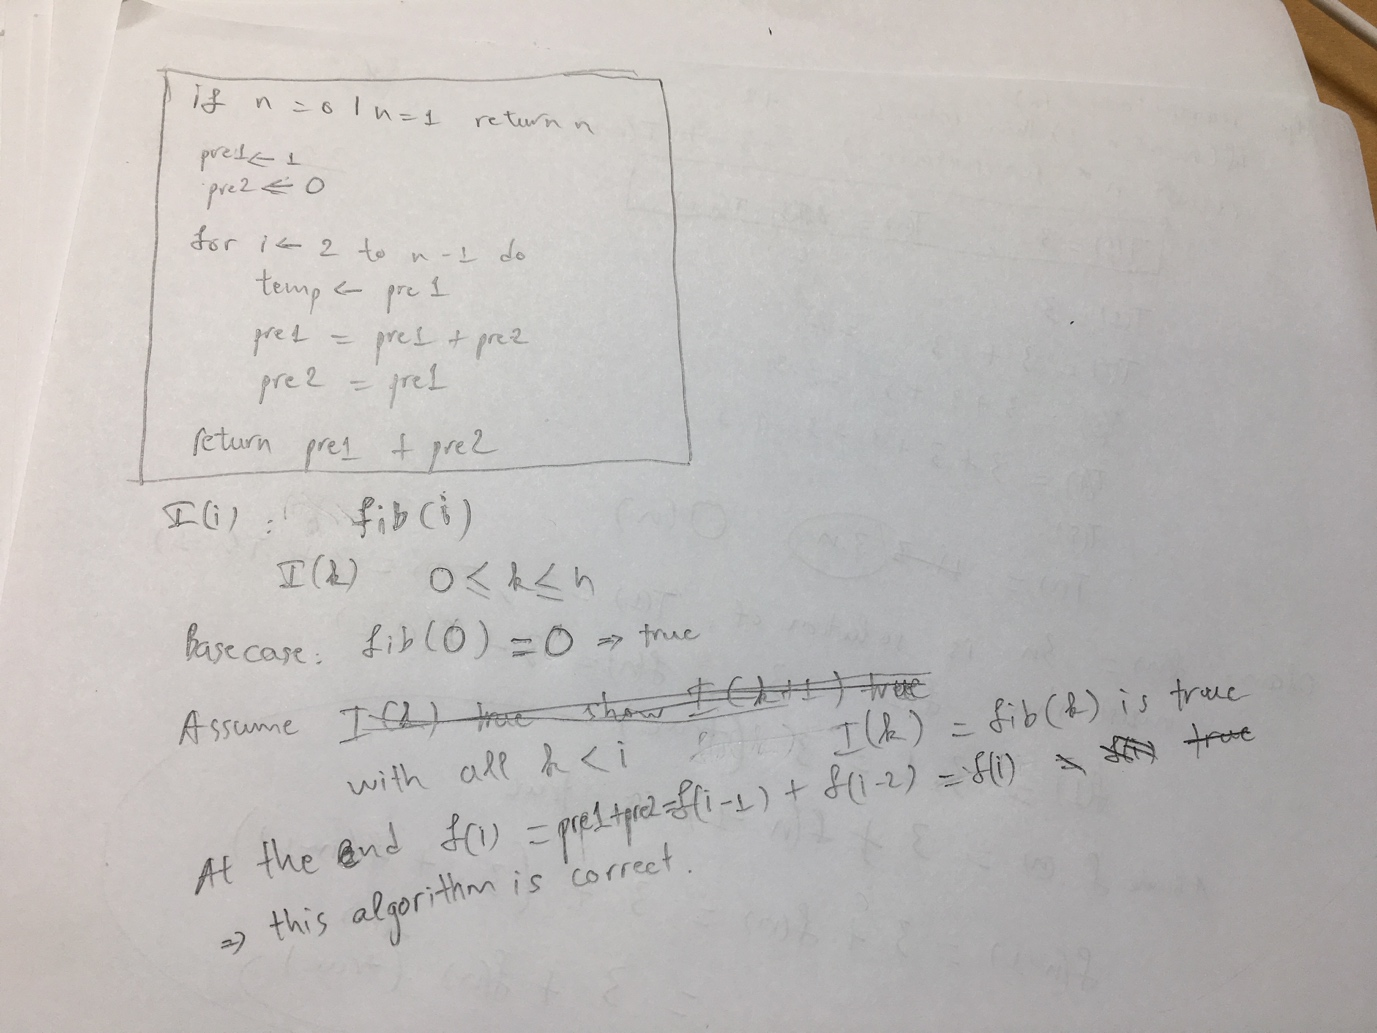 if n = 0 | n = 1 return n
pre1 ← 1
pre2 ← 0
for i ← 2 to n - 1 do
temp ← pre 1
pre1 = pre1 + pre2
pre2 = pre1
return pre1 + pre2
I(i) : fib(i)
I(k) 0 ≤ k ≤ n
Base case: fib(0) = 0 ⇒ true
Assume I(k) true show I(k+1) true
with all k < i I(k) = fib(k) is true
At the end f(i) = pre1+pre2 = f(i-1) + f(i-2) = f(i) true
⇒ this algorithm is correct.